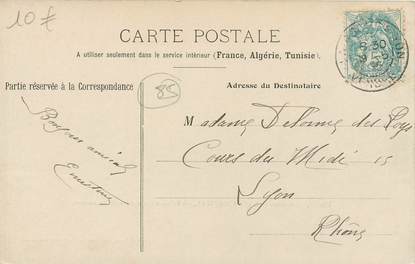 10€
CARTE POSTALE
A utiliser seulement dans le service intérieur (France, Algérie, Tunisie).
Partie réservée à la Correspondance
85
Adresse du Destinataire
Madame Delorme des
Cours du Midi 15
Lyon
Rhône
Bonjour amical